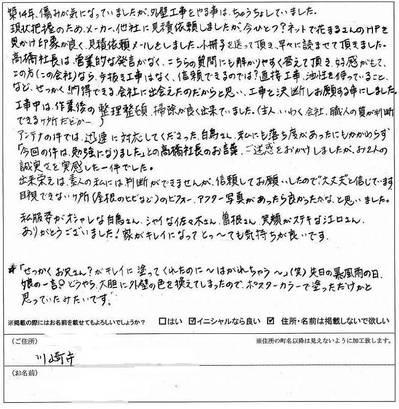 築14年、傷みが気になっていましたが、外壁工事とやる事は、ちゅうちょしていました。
現状把握のため、メーカー、他社に見積依頼しましたが、今ひとつ?ネットで花まるさんのHPを
見かけ印象が良く、見積依頼メールをしました。小冊子を送って頂き、早々に読ませて頂きました。
高橋社長は、営業的な発言がなく、こちらの質問にも解かりやすく答えて頂き、好感がもて、
この方(この会社)なら、手抜き工事はなく、信頼できるのでは?直接工事、池袋を使っていること、
など、せっかく納得できる会社に出会えたのだからと思い、工事を決断しお願いする事にしました。
工事中は、作業後の整理整頓、掃除が良く出来ていました。(主人いわく会社、職人の質が判断
できる所だとか〜
アンテナの件では、迅速に対応してくださった白鳥さん、私にも落ち度があったにもかかわらず
「今回の件は、勉強になりました」との高橋社長のお言葉、ご迷惑をおかけしましたが、お2人の
誠実さを実感した一件でした。
出来栄えは、素人の私には判断ができませんが、信頼してお願いしたので"大丈夫"と信じています
目視できない所(屋根のヒビなど)のビフォー、アフター写真があったら良かったかな、と思いました。
私服姿がオシャレな白鳥さん、シャイな佐々木さん、曽根さん、笑顔がステキな江口さん、
ありがとうございました!家がキレイになってとっ〜ても気持ちが良いです。
*「せっかくお兄さん?がキレイに塗ってくれたのに〜はがれちゃう〜」(笑)先日の暴風雨の日、
娘の一言?どうやら、大胆に外壁の色を換えてしまったので、ポスターカラーで塗っただけかと
思っていたみたいです。
※掲載の際にはお名前を載せてもよろしいでしょうか? □はい ☑イニシャルなら良い ☑住所・名前は掲載しないで欲しい
(ご住所) ※住所の町名以降は見えないように加工致します。
川崎市
(お名前)